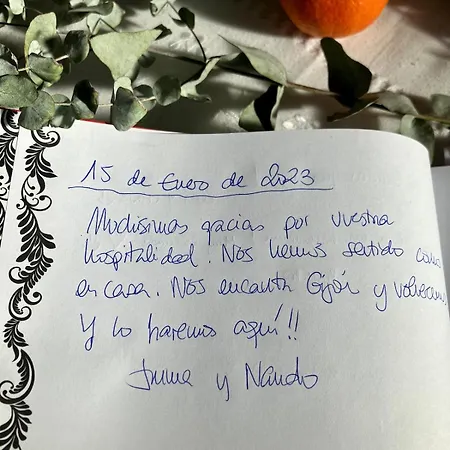 15 de Enero de 2023
Muchisimas gracias por vuestra
hospitalidad. Nos hemos sentido como
en casa. Nos encanta Gijón y volveremos
Y lo haremos aquí!!
Inma y Nando